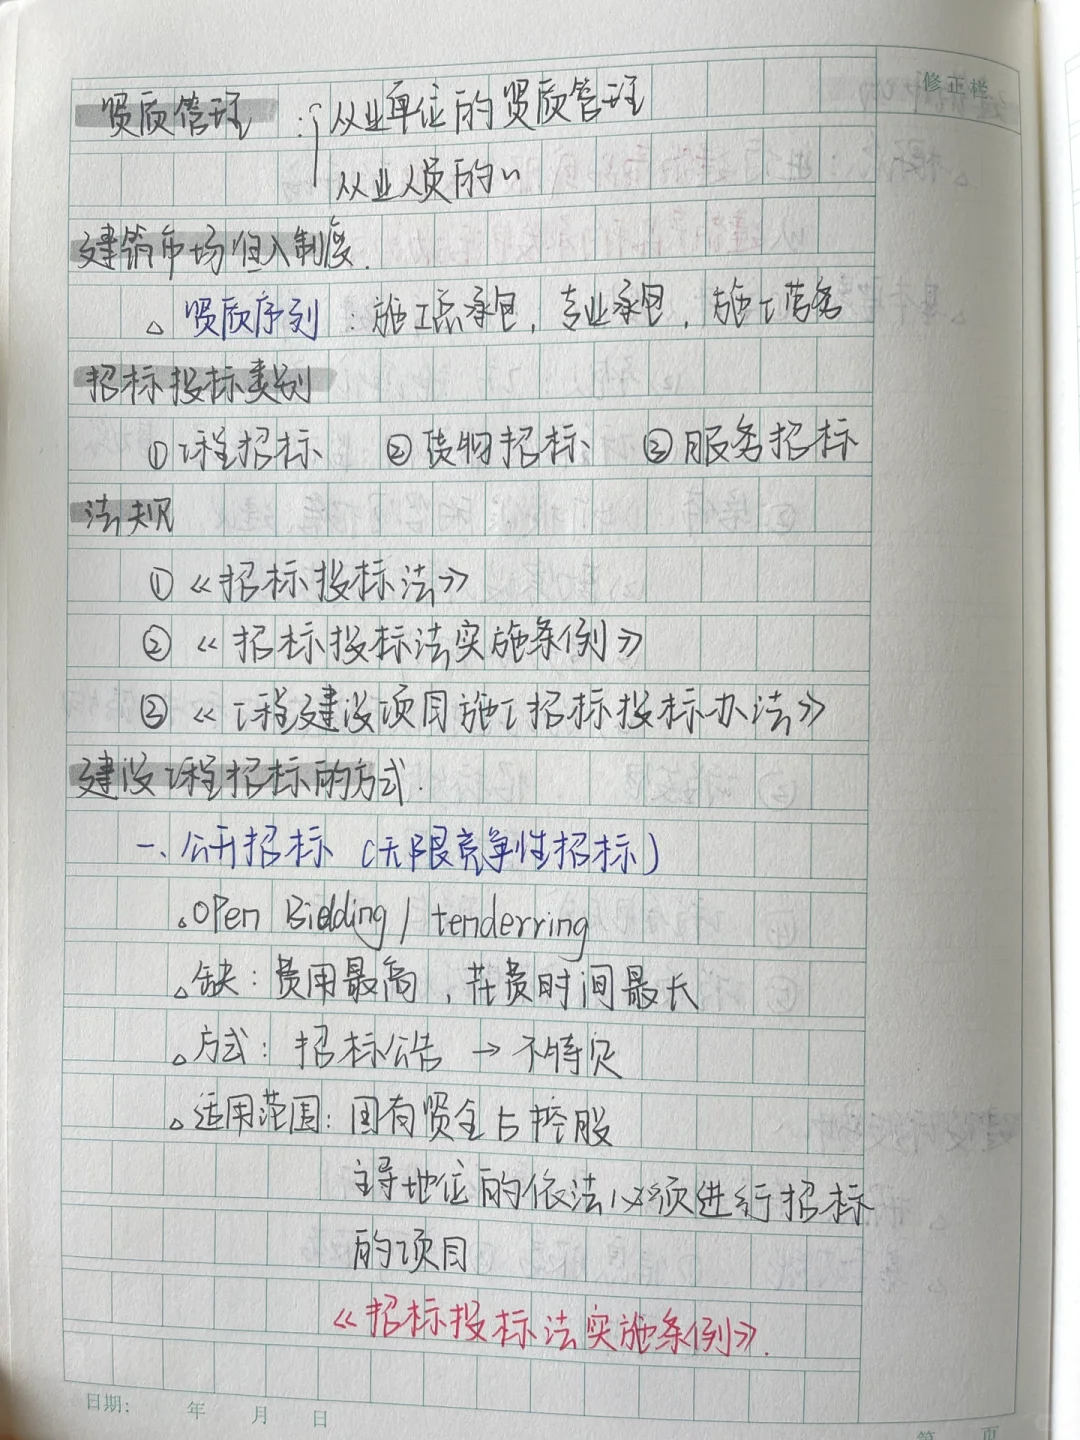 修正栏
资质管理：从业单位的资质管理
从业人员的〃
建筑市场准入制度.
△资质序列：施工总承包，专业承包，施工劳务
招标投标类别
①工程招标 ②货物招标 ③服务招标
法规
①《招标投标法》
②《招标投标法实施条例》
③《工程建设项目施工招标投标办法》
建设工程招标的方式.
一、公开招标（无限竞争性招标）
△Open Bidding / tenderring
△缺：费用最高，花费时间最长
△方式：招标公告 → 不特定
△适用范围：国有资金占控股
主导地位的依法必须进行招标
的项目
《招标投标法实施条例》.
日期： 年 月 日
第 页